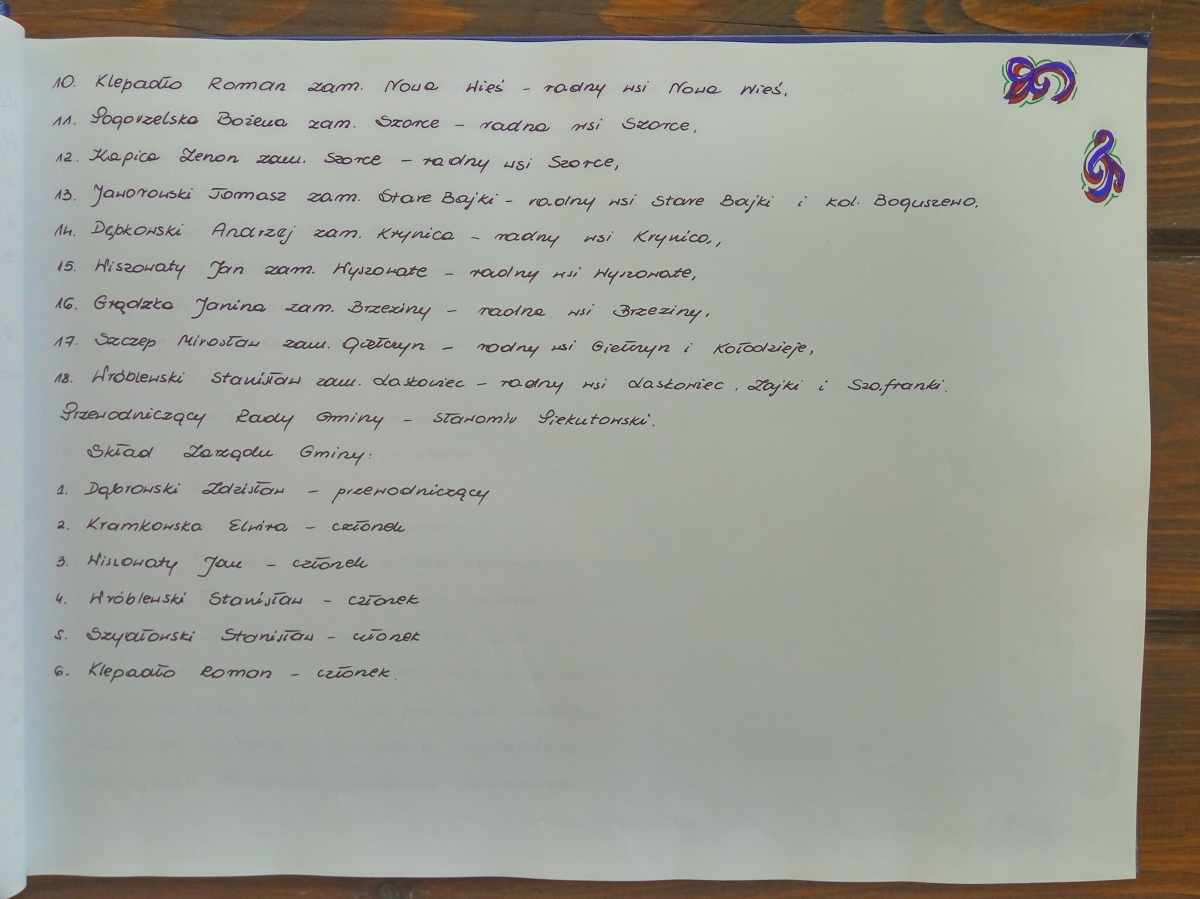 10. Klepadło Roman zam. Nowa Wieś - radny wsi Nowa Wieś,
11. Pogorzelska Bożena zam. Szorce - radna wsi Szorce,
12. Kapica Zenon zam. Szorce - radny wsi Szorce,
13. Jaworowski Tomasz zam. Stare Bajki - radny wsi Stare Bajki i kol. Boguszewo.
14. Dębkowski Andrzej zam. Krynica - radny wsi Krynica,,
15. Wiszowaty Jan zam. Wyszowate - radny wsi Wyszowate,
16. Grądzka Janina zam. Brzeziny - radna wsi Brzeziny,
17. Szczep Mirosław zam. Giełczyn - radny wsi Giełczyn i Kołodzieje,
18. Wróblewski Stanisław zam. Laskowiec - radny wsi Laskowiec, Zajki i Szafranki.
Przewodniczący Rady Gminy - Sławomir Piekutowski.
Skład Zarządu Gminy:
1. Dąbrowski Zdzisław - przewodniczący
2. Kramkowska Elwira - członek
3. Wiszowaty Jan - członek
4. Wróblewski Stanisław - członek
5. Szydłowski Stanisław - członek
6. Klepadło Roman - członek.